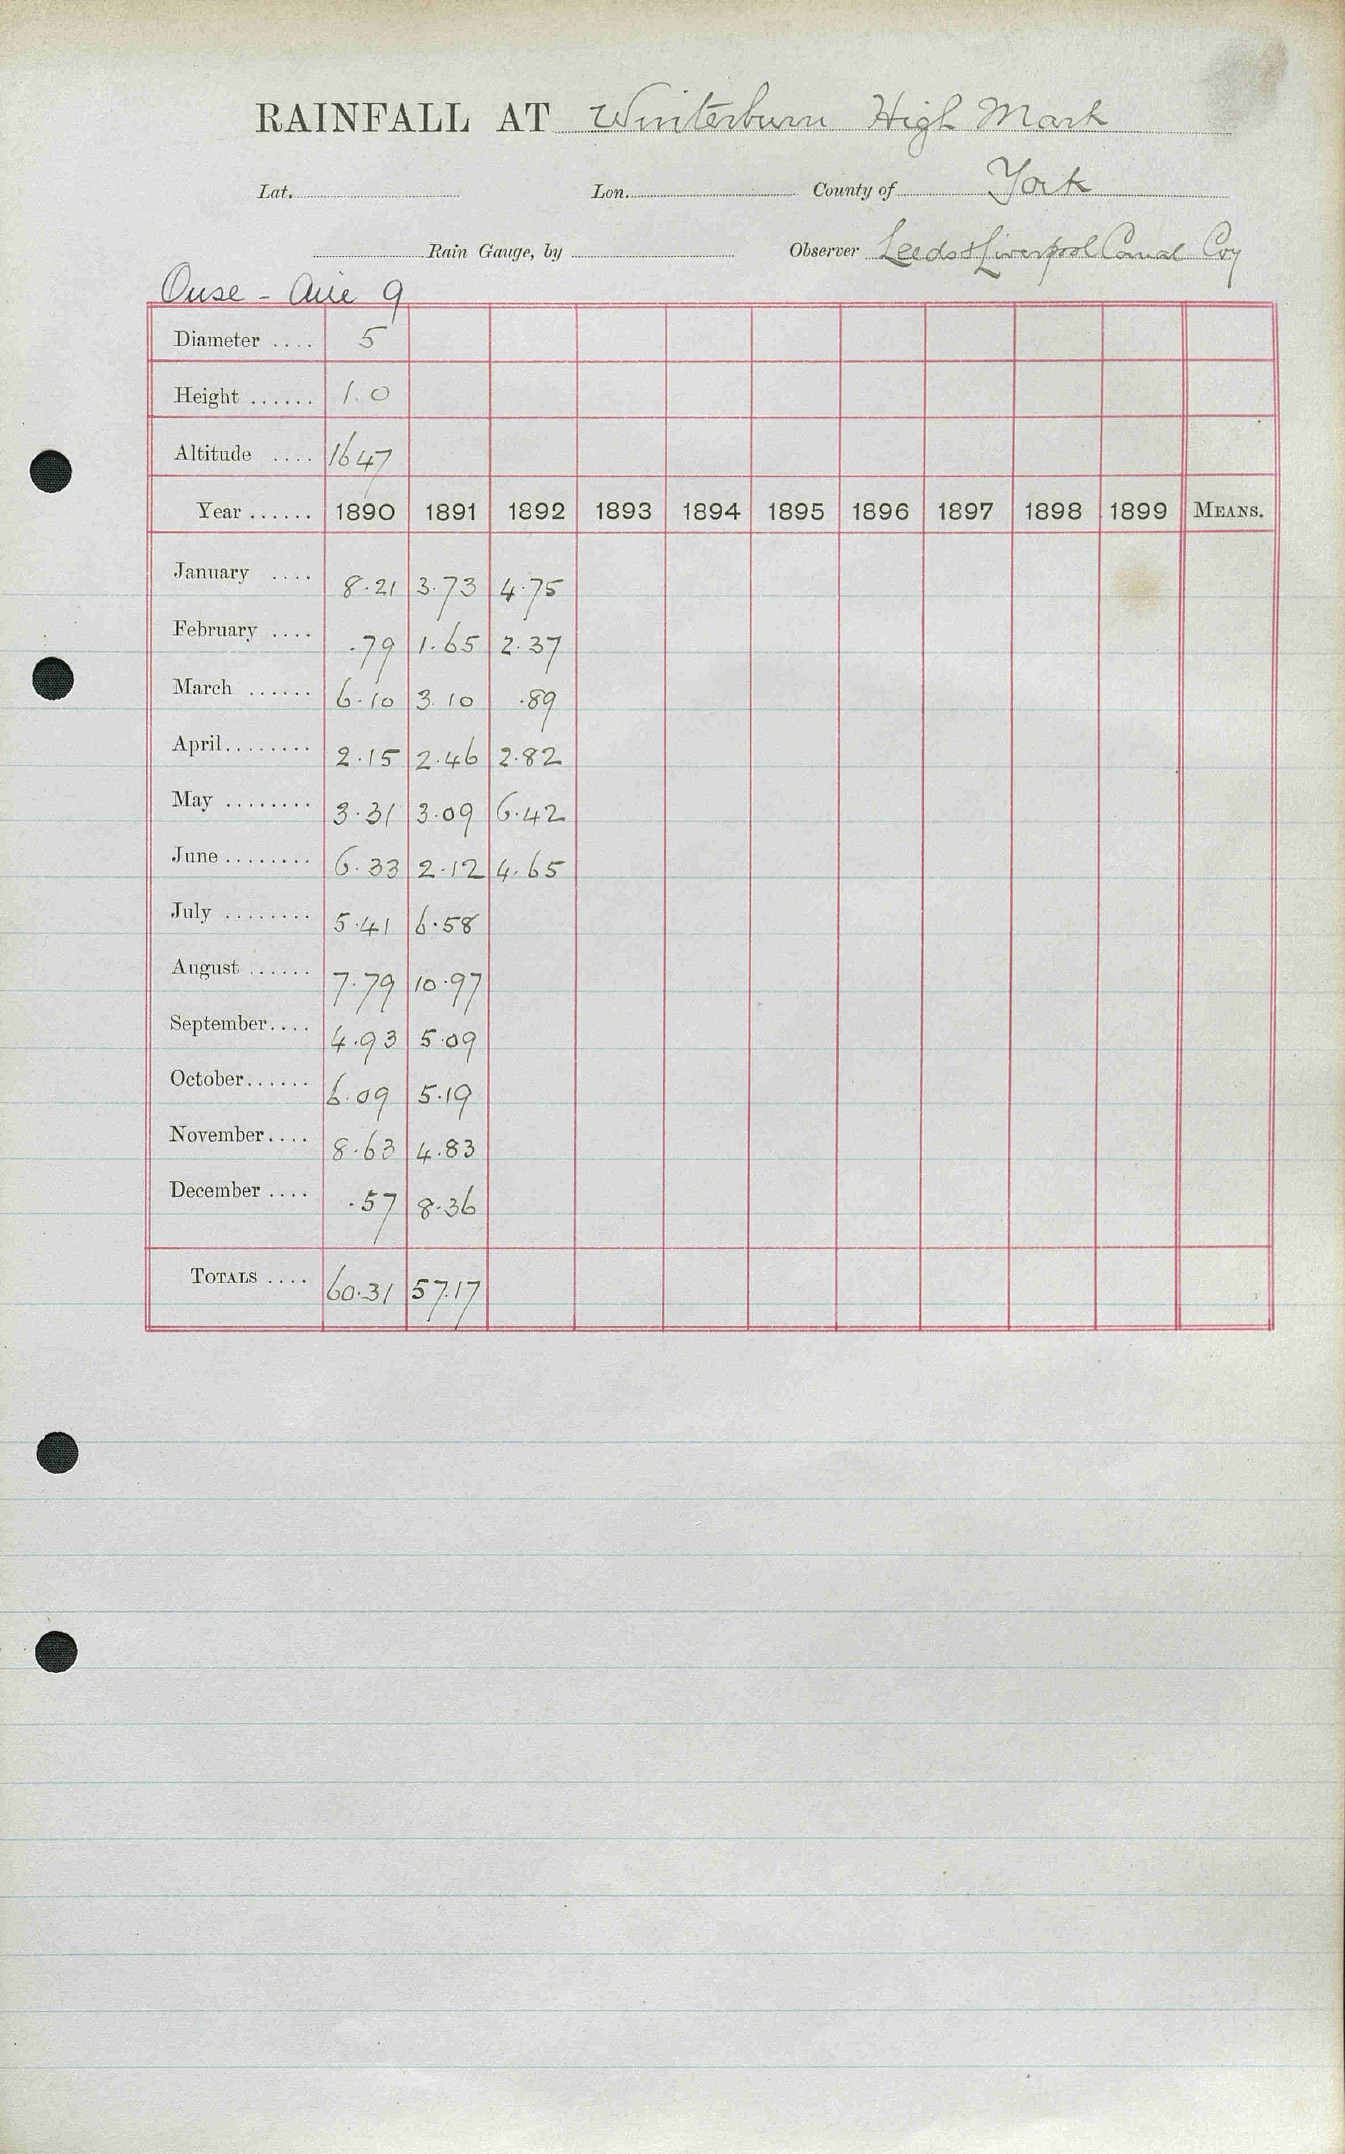 RAINFALL AT Winterburn High Mark
Lat. Lon. County of York
Rain Gauge, by Observer Leeds & Liverpool Canal Coy
Ouse - Aire 9
Diameter .... 5
Height ...... 1.0
Altitude .... 1647
Year ...... 1890 1891 1892 1893 1894 1895 1896 1897 1898 1899 MEANS.
January .... 8.21 3.73 4.75
February .... .79 1.65 2.37
March ...... 6.10 3.10 .89
April........ 2.15 2.46 2.82
May ........ 3.31 3.09 6.42
June ........ 6.33 2.12 4.65
July ........ 5.41 6.58
August ...... 7.79 10.97
September.... 4.93 5.09
October...... 6.09 5.19
November.... 8.63 4.83
December .... .57 8.36
TOTALS .... 60.31 57.17